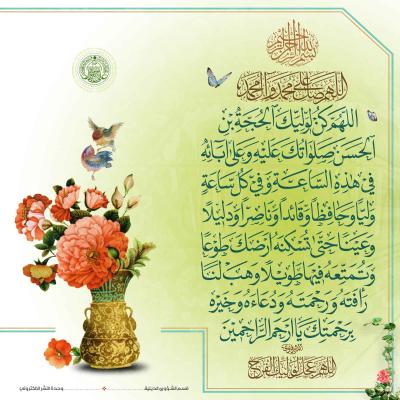 بسم الله الرحمن الرحيم
اللهم صل على محمد وآل محمد
اَللّهُمَّ كُنْ لِوَلِيِّكَ الْحُجَّةِ بْنِ
الْحَسَنِ صَلَواتُكَ عَلَيْهِ وَعَلى آبائِهِ
في هذِهِ السّاعَةِ وَفي كُلِّ ساعَةٍ
وَلِيّاً وَحافِظاً وَقائِداً وَناصِراً وَدَليلاً
وَعَيْناً حَتّى تُسْكِنَهُ أَرْضَكَ طَوْعاً
وَتُمَتِّعَهُ فيها طَويلاً وَهَبْ لَنا
رَأْفَتَهُ وَرَحْمَتَهُ وَدُعاءَهُ وَخَيْرَهُ
بِرَحْمَتِكَ يا أَرْحَمَ الرّاحِمينَ
اللهم عجل لوليك الفرج
قسم الشؤون الدينية
وحدة النشر الالكتروني